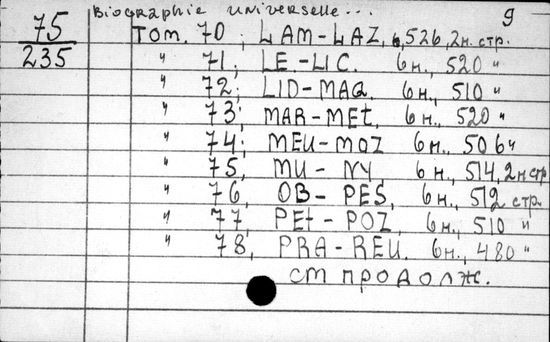 Biographie universelle... 9
75
235
Том. 70; LAM-LAZ, 6,526,2н.стр.
" 71, LE.-LIC. 6н., 520 "
" 72; LID-MAQ. 6н., 510 "
" 73; MAR-MET, 6н., 520 "
" 74; MEU-MOZ 6н., 506 "
" 75, MU - NY, 6н., 514,2нстр
" 76, OB- PES, 6н., 512 стр.
" 77, PET- POZ, 6н., 510 "
" 78, PRA-REU. 6н., 480 "
см продолж.